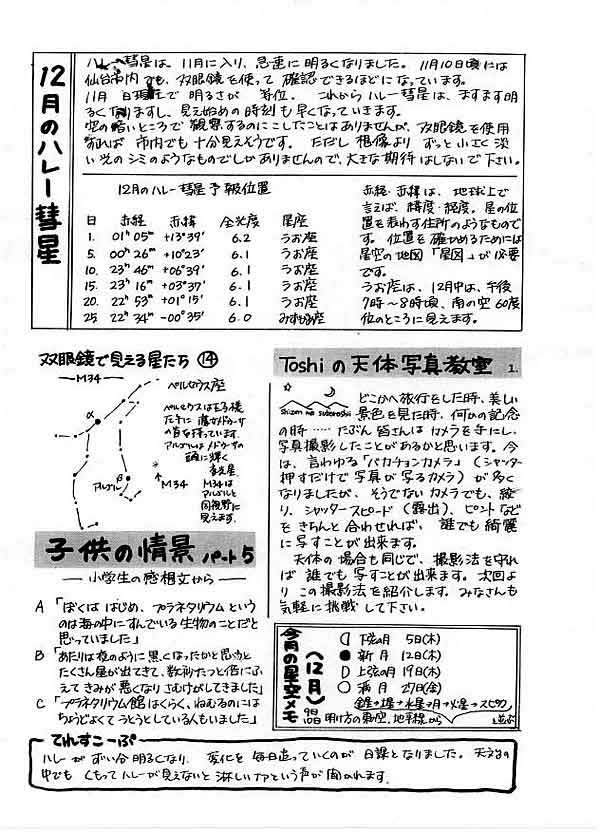 12月のハレー彗星
ハレー彗星は、11月に入り、急速に明るくなりました。11月10日頃には
仙台市内でも、双眼鏡を使って確認できるほどになっています。
11月 日現在で明るさが 等位。これからハレー彗星は、ますます明
るく なりますし、見え始めの時刻も早くなっていきます。
空の暗いところで観察するのにこしたことはありませんが、双眼鏡を使用
すれば 市内でも十分見えそうです。ただし想像よりずっと小さく淡
い光のシミのようなものでしかありませんので、大きな期待はしないで下さい。
12月のハレー彗星予報位置
日 赤経 赤緯 全光度 星座
1. 01h05m +13°39′ 6.2 うお座
5. 00h26m +10°23′ 6.1 うお座
10. 23h46m +06°39′ 6.1 うお座
15. 23h16m +03°37′ 6.1 うお座
20. 22h53m +01°15′ 6.1 うお座
25 22h34m -00°35′ 6.0 みずがめ座
赤経・赤緯は、地球上で
言えば、緯度・経度。星の位
置を表わす住所のようなもので
す。位置を確かめるためには
星空の地図「星図」が必要
です。
うお座は、12月中は、午後
7時〜8時頃、南の空60度
位のところに見えます。
双眼鏡で見える星たち ⑭
—M34—
ペルセウス座
ペルセウスは王子様
で手に魔女メドゥーサ
の首を持っています。
アルゴルはメドゥーサの
頭に輝く
変光星。
M34は
アルゴルと
同視野に
見えます。
α
β
アルゴル
M34
子供の情景 パート5
— 小学生の感想文から —
A 「ぼくは はじめ、プラネタリウムという
のは海の中にすんでいる生物のことだと
思っていました」
B 「あたりは夜のように黒くなったかと思うと
たくさん星が出てきて、数秒たつと倍にふ
えてきみが悪くなりさむけがしてきました」
C 「プラネタリウム館はくらく、ねむるのには
ちょうどよくてうとうとしている人もいました」
Toshiの天体写真教室 1.
Shizen wa subarashii
どこかへ旅行をした時、美しい
景色を見た時、何かの記念
の時……たぶん皆さんはカメラを手にし、
写真撮影したことがあるかと思います。今
は、言わゆる「バカチョンカメラ」(シャッター
押すだけで写真が写るカメラ)が多く
なりましたが、そうでないカメラでも、絞
り、シャッタースピード(露出)、ピントなど
をきちんと合わせれば、誰でも綺麗
に写すことが出来ます。
天体の場合も同じで、撮影法を守れ
ば誰でも写すことが出来ます。次回よ
りこの撮影法を紹介します。みなさんも
気軽に挑戦して下さい。
今月の星空メモ
(12月)
下弦の月 5日(木)
新月 12日(木)
上弦の月 19日(木)
満月 27日(金)
金星→土星→水星→月→火星→スピカ
9日
10日 明け方の東空、地平線から
と並ぶ
てれすこーぷ
ハレーがずい分明るくなり、変化を毎日追っていくのが日課となりました。天文台の
中でも くもってハレーが見えないと淋しいナァという声が聞かれます。